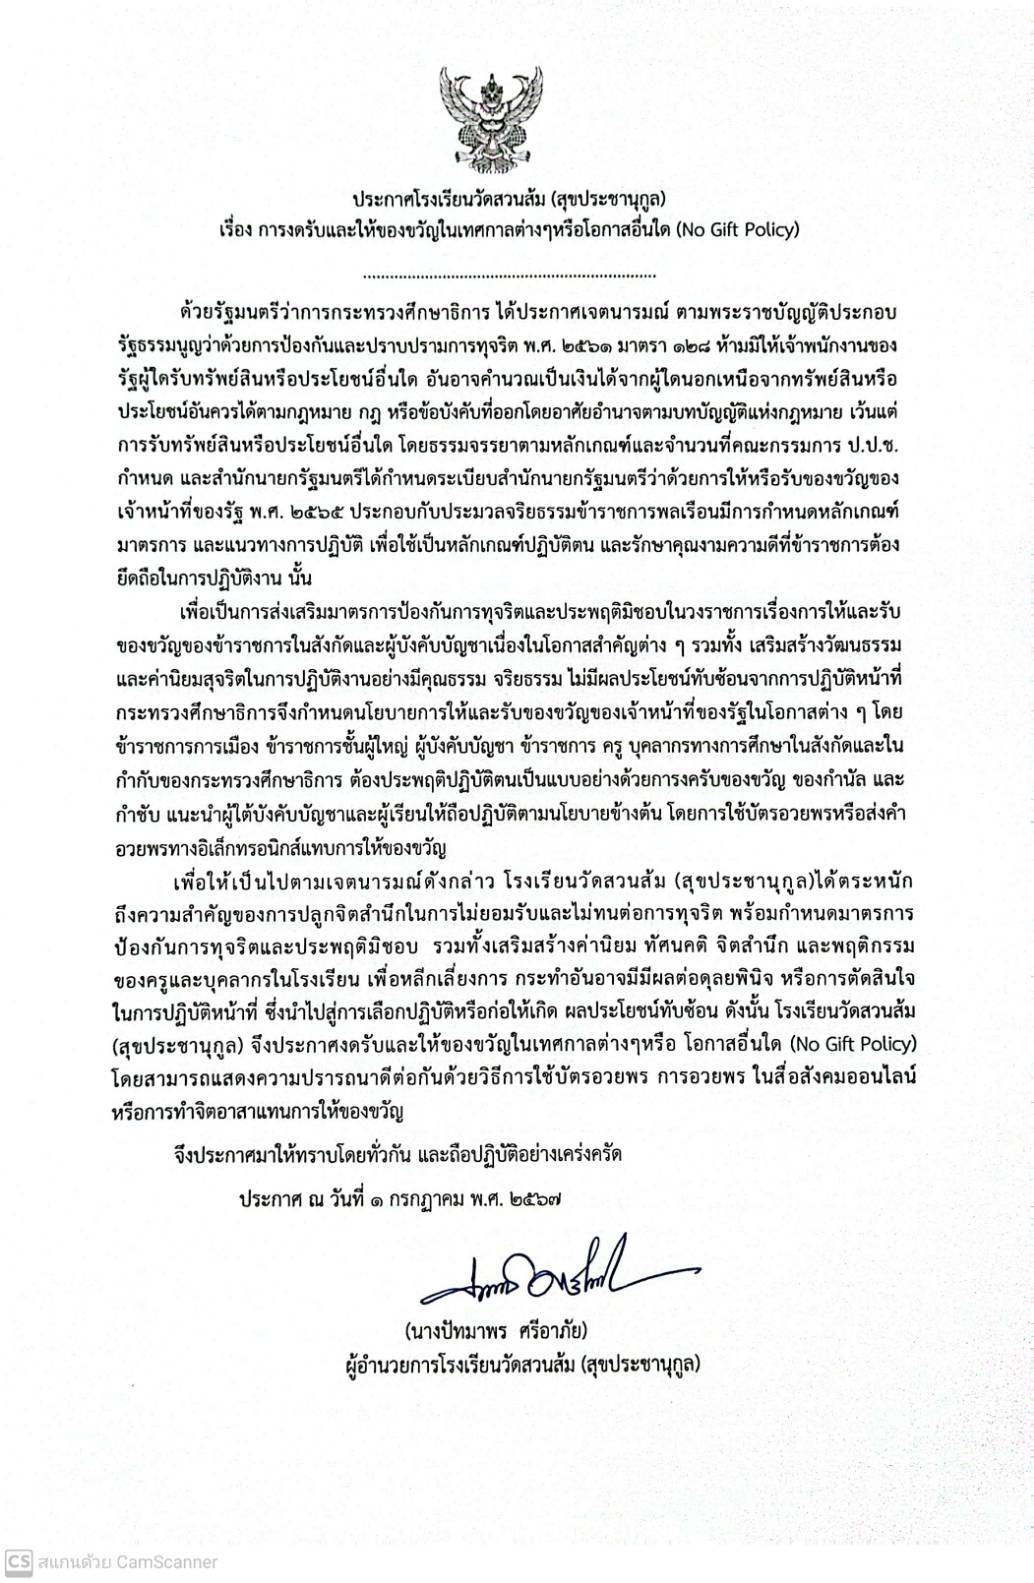 ประกาศโรงเรียนวัดสวนส้ม (สุขประชานุกูล)
เรื่อง การงดรับและให้ของขวัญในเทศกาลต่างๆหรือโอกาสอื่นใด (No Gift Policy)
ด้วยรัฐมนตรีว่าการกระทรวงศึกษาธิการ ได้ประกาศเจตนารมณ์ ตามพระราชบัญญัติประกอบ
รัฐธรรมนูญว่าด้วยการป้องกันและปราบปรามการทุจริต พ.ศ. ๒๕๖๑ มาตรา ๑๒๘ ห้ามมิให้เจ้าพนักงานของ
รัฐผู้ใดรับทรัพย์สินหรือประโยชน์อื่นใด อันอาจคำนวณเป็นเงินได้จากผู้ใดนอกเหนือจากทรัพย์สินหรือ
ประโยชน์อันควรได้ตามกฎหมาย กฎ หรือข้อบังคับที่ออกโดยอาศัยอำนาจตามบทบัญญัติแห่งกฎหมาย เว้นแต่
การรับทรัพย์สินหรือประโยชน์อื่นใด โดยธรรมจรรยาตามหลักเกณฑ์และจำนวนที่คณะกรรมการ ป.ป.ช.
กำหนด และสำนักนายกรัฐมนตรีได้กำหนดระเบียบสำนักนายกรัฐมนตรีว่าด้วยการให้หรือรับของขวัญของ
เจ้าหน้าที่ของรัฐ พ.ศ. ๒๕๖๕ ประกอบกับประมวลจริยธรรมข้าราชการพลเรือนมีการกำหนดหลักเกณฑ์
มาตรการ และแนวทางการปฏิบัติ เพื่อใช้เป็นหลักเกณฑ์ปฏิบัติตน และรักษาคุณงามความดีที่ข้าราชการต้อง
ยึดถือในการปฏิบัติงาน นั้น
เพื่อเป็นการส่งเสริมมาตรการป้องกันการทุจริตและประพฤติมิชอบในวงราชการเรื่องการให้และรับ
ของขวัญของข้าราชการในสังกัดและผู้บังคับบัญชาเนื่องในโอกาสสำคัญต่าง ๆ รวมทั้ง เสริมสร้างวัฒนธรรม
และค่านิยมสุจริตในการปฏิบัติงานอย่างมีคุณธรรม จริยธรรม ไม่มีผลประโยชน์ทับซ้อนจากการปฏิบัติหน้าที่
กระทรวงศึกษาธิการจึงกำหนดนโยบายการให้และรับของขวัญของเจ้าหน้าที่ของรัฐในโอกาสต่าง ๆ โดย
ข้าราชการการเมือง ข้าราชการชั้นผู้ใหญ่ ผู้บังคับบัญชา ข้าราชการ ครู บุคลากรทางการศึกษาในสังกัดและใน
กำกับของกระทรวงศึกษาธิการ ต้องประพฤติปฏิบัติตนเป็นแบบอย่างด้วยการงครับของขวัญ ของกำนัล และ
กำชับ แนะนำผู้ใต้บังคับบัญชาและผู้เรียนให้ถือปฏิบัติตามนโยบายข้างต้น โดยการใช้บัตรอวยพรหรือส่งคำ
อวยพรทางอิเล็กทรอนิกส์แทบการให้ของขวัญ
เพื่อให้เป็นไปตามเจตนารมณ์ดังกล่าว โรงเรียนวัดสวนส้ม (สุขประชานุกูล)ได้ตระหนัก
ถึงความสำคัญของการปลูกจิตสำนึกในการไม่ยอมรับและไม่ทนต่อการทุจริต พร้อมกำหนดมาตรการ
ป้องกันการทุจริตและประพฤติมิชอบ รวมทั้งเสริมสร้างค่านิยม ทัศนคติ จิตสำนึก และพฤติกรรม
ของครูและบุคลากรในโรงเรียน เพื่อหลีกเลี่ยงการ กระทำอันอาจมีมีผลต่อดุลยพินิจ หรือการตัดสินใจ
ในการปฏิบัติหน้าที่ ซึ่งนำไปสู่การเลือกปฏิบัติหรือก่อให้เกิด ผลประโยชน์ทับซ้อน ดังนั้น โรงเรียนวัดสวนส้ม
(สุขประชานุกูล) จึงประกาศงดรับและให้ของขวัญในเทศกาลต่างๆหรือ โอกาสอื่นใด (No Gift Policy)
โดยสามารถแสดงความปรารถนาดีต่อกันด้วยวิธีการใช้บัตรอวยพร การอวยพร ในสื่อสังคมออนไลน์
หรือการทำจิตอาสาแทนการให้ของขวัญ
จึงประกาศมาให้ทราบโดยทั่วกัน และถือปฏิบัติอย่างเคร่งครัด
ประกาศ ณ วันที่ ๑ กรกฎาคม พ.ศ. ๒๕๖๗
(นางปัทมาพร ศรีอาภัย)
ผู้อำนวยการโรงเรียนวัดสวนส้ม (สุขประชานุกูล)
CS สแกนด้วย CamScanner